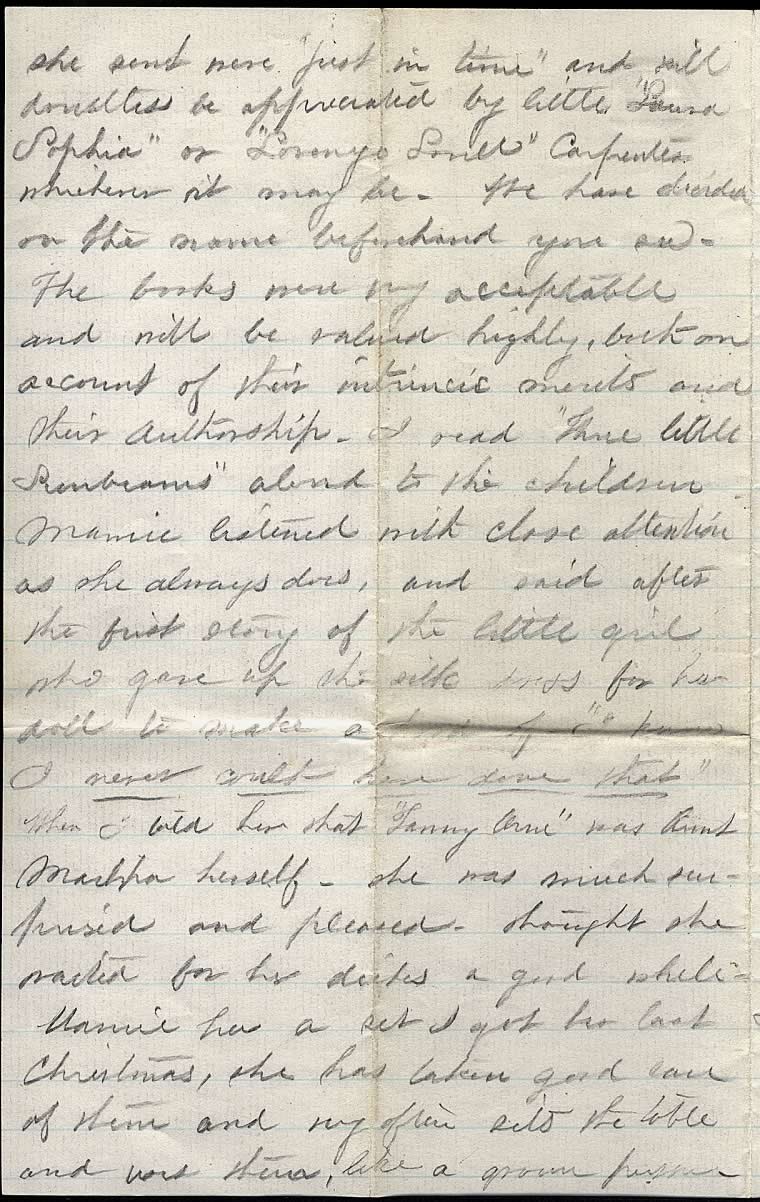 she sent were "just in time" and will
doubtless be appreciated by little "Laura
Sophia" or "Lorenzo Snell" Carpenter
whichever it may be - We have decided
on the name beforehand you see -
The books were very acceptable
and will be valued highly, both on
account of their intrincic merits and
their authorship - I read "Three little
Sunbeams" aloud to the children
Mamie listened with close attention
as she always does, and said after
the first story of the little girl
who gave up the silk dress for her
doll to make a of "
I never could have done that"
When I told her that "Fanny " was Aunt
Martha herself - she was much sur-
prised and pleased - thought she
waited for her dishes a good while -
Mamie has a set I got her last
Christmas, she has taken good care
of them and very often sets the table
and uses them, like a grown person -